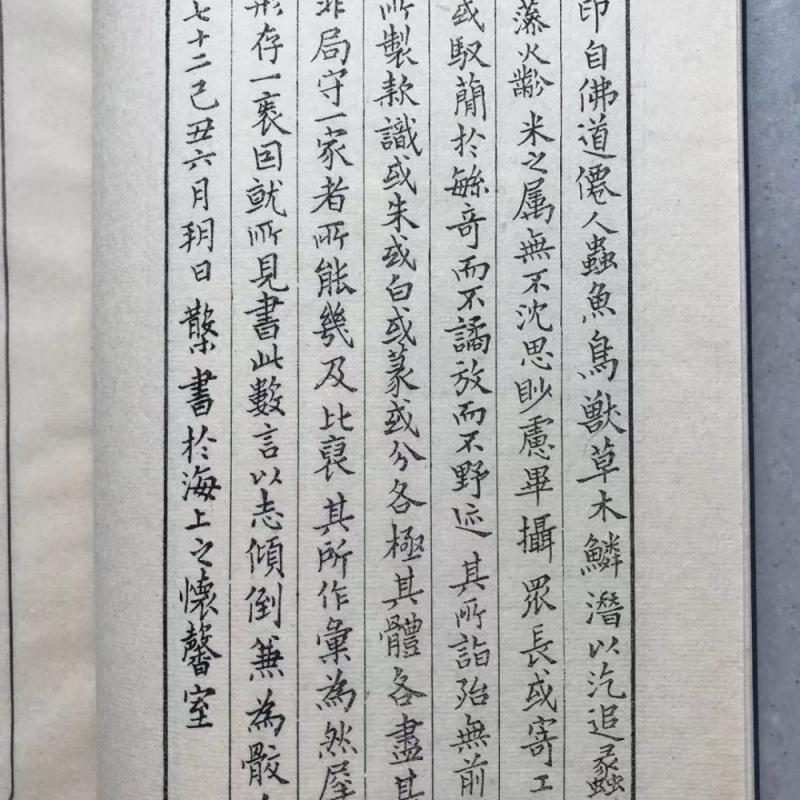 印自佛道僊人蟲魚鳥獸草木鱗潛以汔追蠡
藻火黺米之属無不沈思眇慮畢攝眾長或寄工
或馭蕑於緐奇而不譎放而不野迹其所詣殆無前
所製款識或朱或白或篆或分各極其體各盡其
非局守一家者所能幾及比裒其所作彙為然犀
存一袠因就所見書此數言以志傾倒兼為骰
七十二己丑六月朔日 書於海上之懷馨室